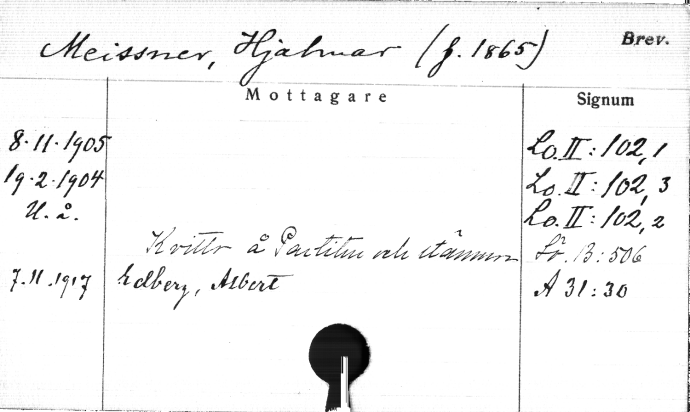 Meissner, Hjalmar (f. 1865) Brev.
Mottagare Signum
8.11.1905 Lo. II: 102, 1
19.2.1904 Lo. II: 102, 3
U. å. Lo. II: 102, 2
Kvitto å Partitur och stämmor Lo. B: 506
7.11.1917 Edberg, Albert A 31: 30